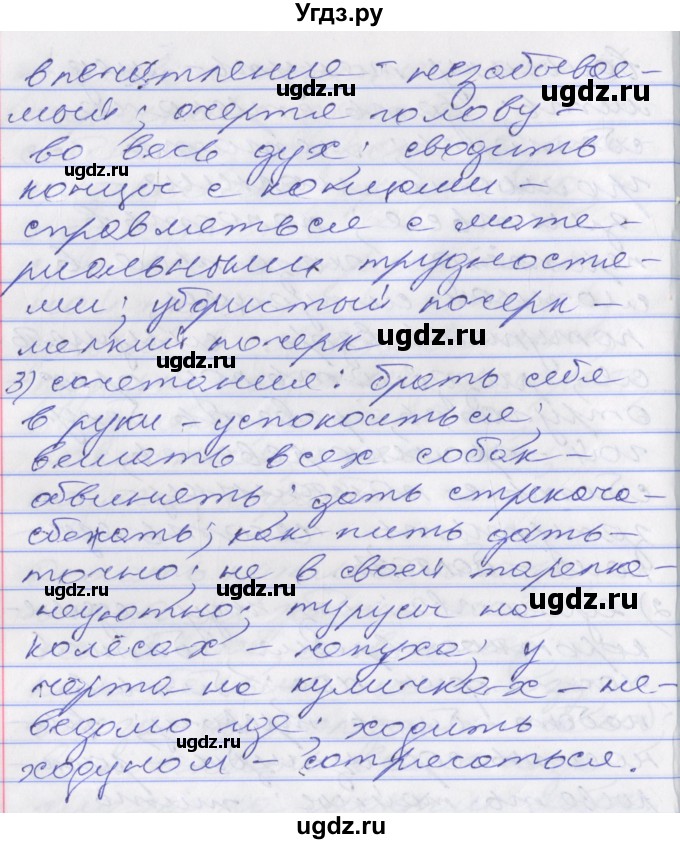 Угдз.ру
впечатление – незабывае-
мый; очертя голову –
во весь дух; сводить
концы с концами –
справляться с мате-
риальными трудностя-
ми; убористый почерк –
мелкий почерк
3) сочетания: брать себя
в руки – успокоиться;
вешать всех собак –
обвинять; дать стрекоча –
сбежать; как пить дать –
точно; не в своей тарелке –
неуютно; турусы на
колёсах – чепуха; у
чёрта на куличках – не-
ведомо где; ходить
ходуном – сотрясаться.
ugdz.ru